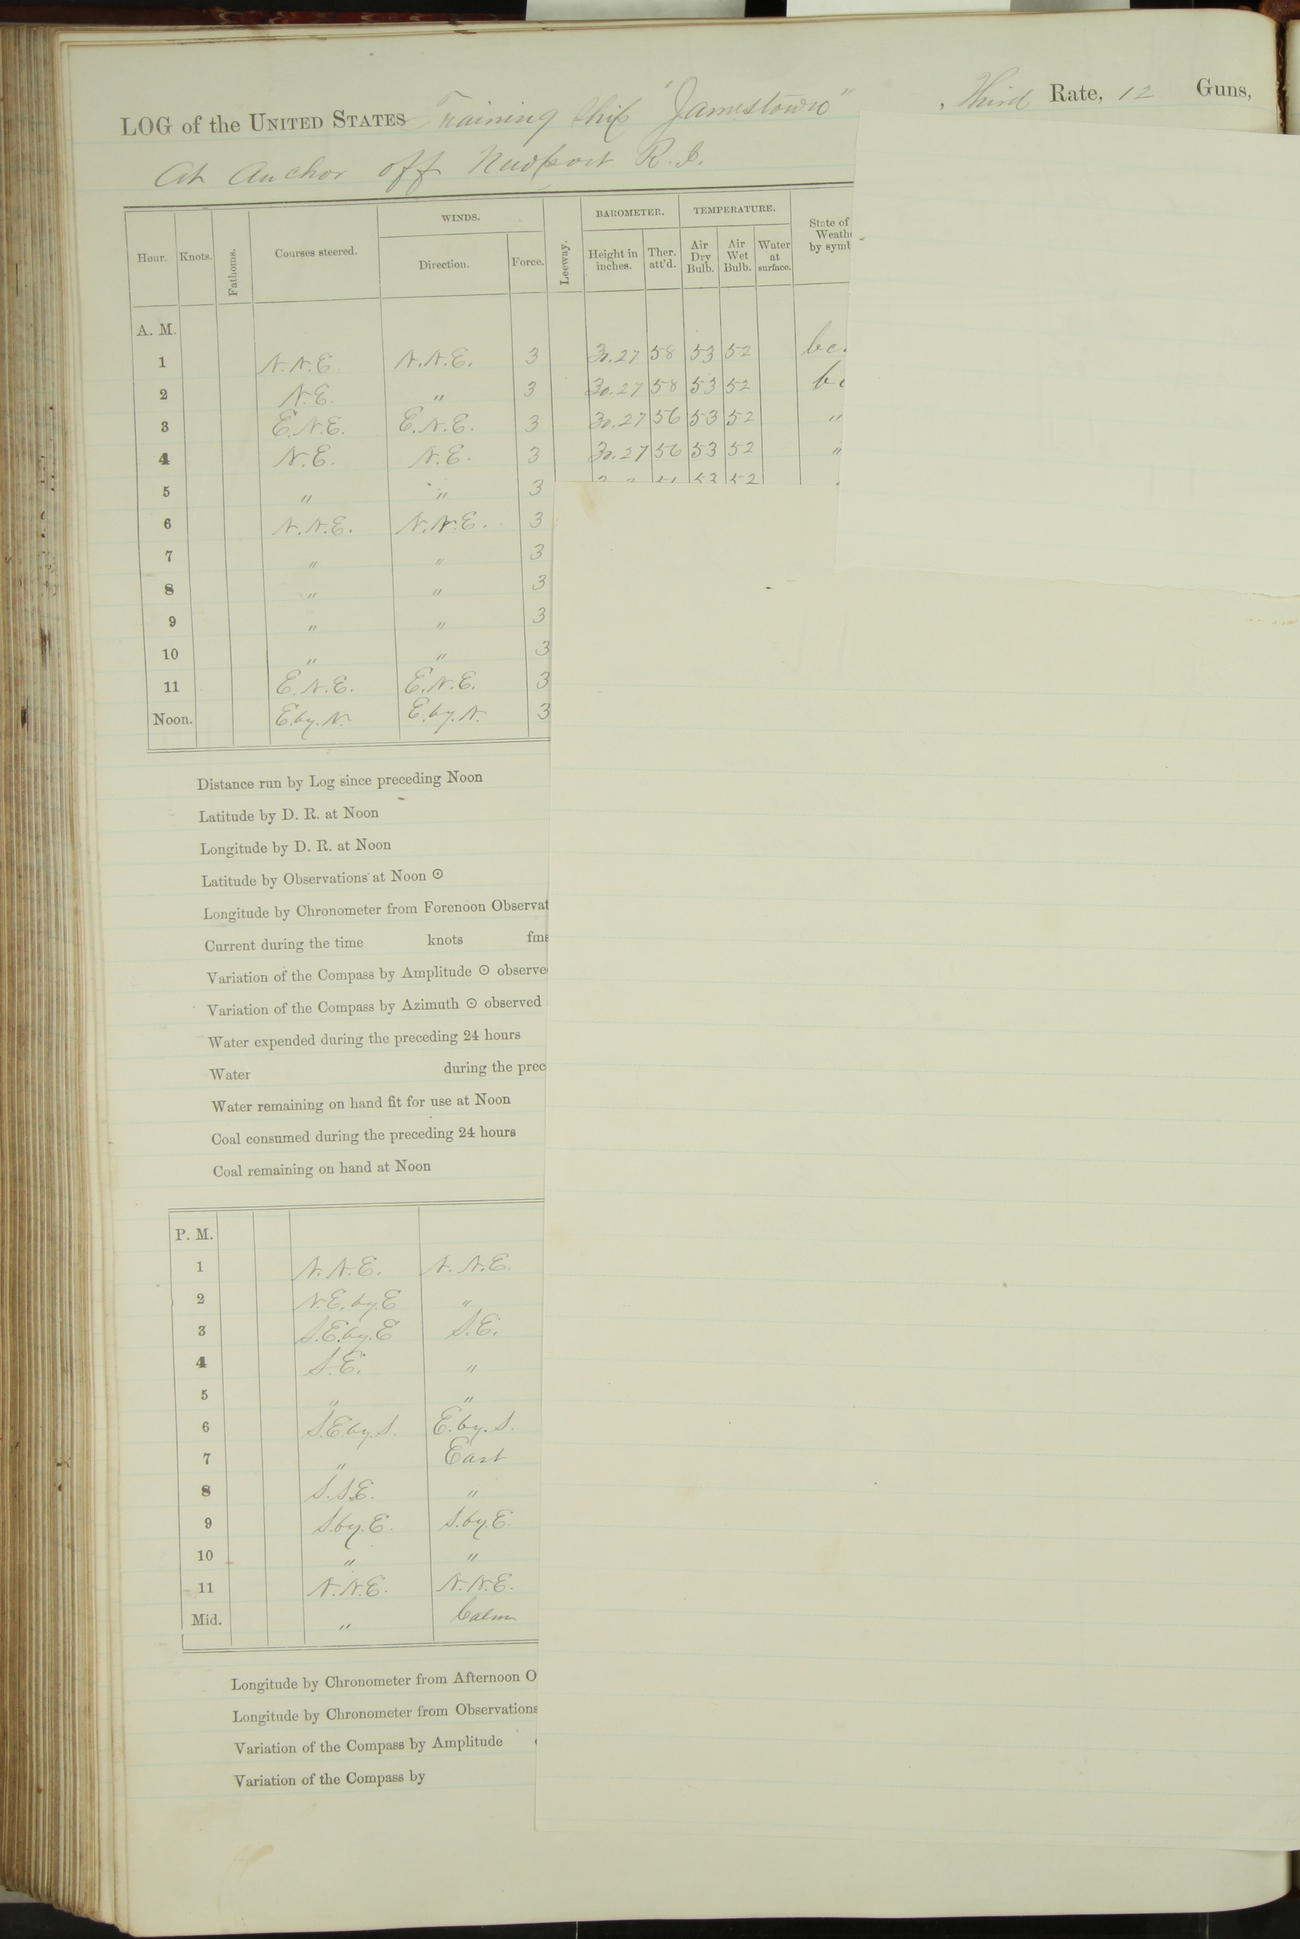 LOG of the UNITED STATES Training Ship "Jamestown", Third Rate, 12 Guns,
At Anchor off Newport R.I.
Hour. Knots. Fathoms. Courses steered. WINDS. Direction. Force. Leeway. BAROMETER. Height in inches. Ther. att'd. TEMPERATURE. Air Dry Bulb. Air Wet Bulb. Water at surface. State of Weathe by symb
A. M.
1 N.N.E. N.N.E. 3 30.27 58 53 52 bc.
2 N.E. " 3 30.27 58 53 52 bc
3 E.N.E. E.N.E. 3 30.27 56 53 52 "
4 N.E. N.E. 3 30.27 56 53 52 "
5 " " 3 53 52
6 N.N.E. N.N.E. 3
7 " " 3
8 " " 3
9 " " 3
10 " " 3
11 E.N.E. E.N.E. 3
Noon. E.by.N. E.by.N. 3
Distance run by Log since preceding Noon
Latitude by D. R. at Noon
Longitude by D. R. at Noon
Latitude by Observations at Noon ⊙
Longitude by Chronometer from Forenoon Observat
Current during the time knots fms
Variation of the Compass by Amplitude ⊙ observe
Variation of the Compass by Azimuth ⊙ observed
Water expended during the preceding 24 hours
Water during the prec
Water remaining on hand fit for use at Noon
Coal consumed during the preceding 24 hours
Coal remaining on hand at Noon
P. M.
1 N.N.E. N.N.E.
2 N.E.by.E "
3 S.E.by.E S.E.
4 S.E. "
5 " "
6 S.E.by.S. E.by.S.
7 " East
8 S.S.E. "
9 S.by.E. S.by.E.
10 " "
11 N.N.E. N.N.E.
Mid. " Calm
Longitude by Chronometer from Afternoon O
Longitude by Chronometer from Observations
Variation of the Compass by Amplitude
Variation of the Compass by